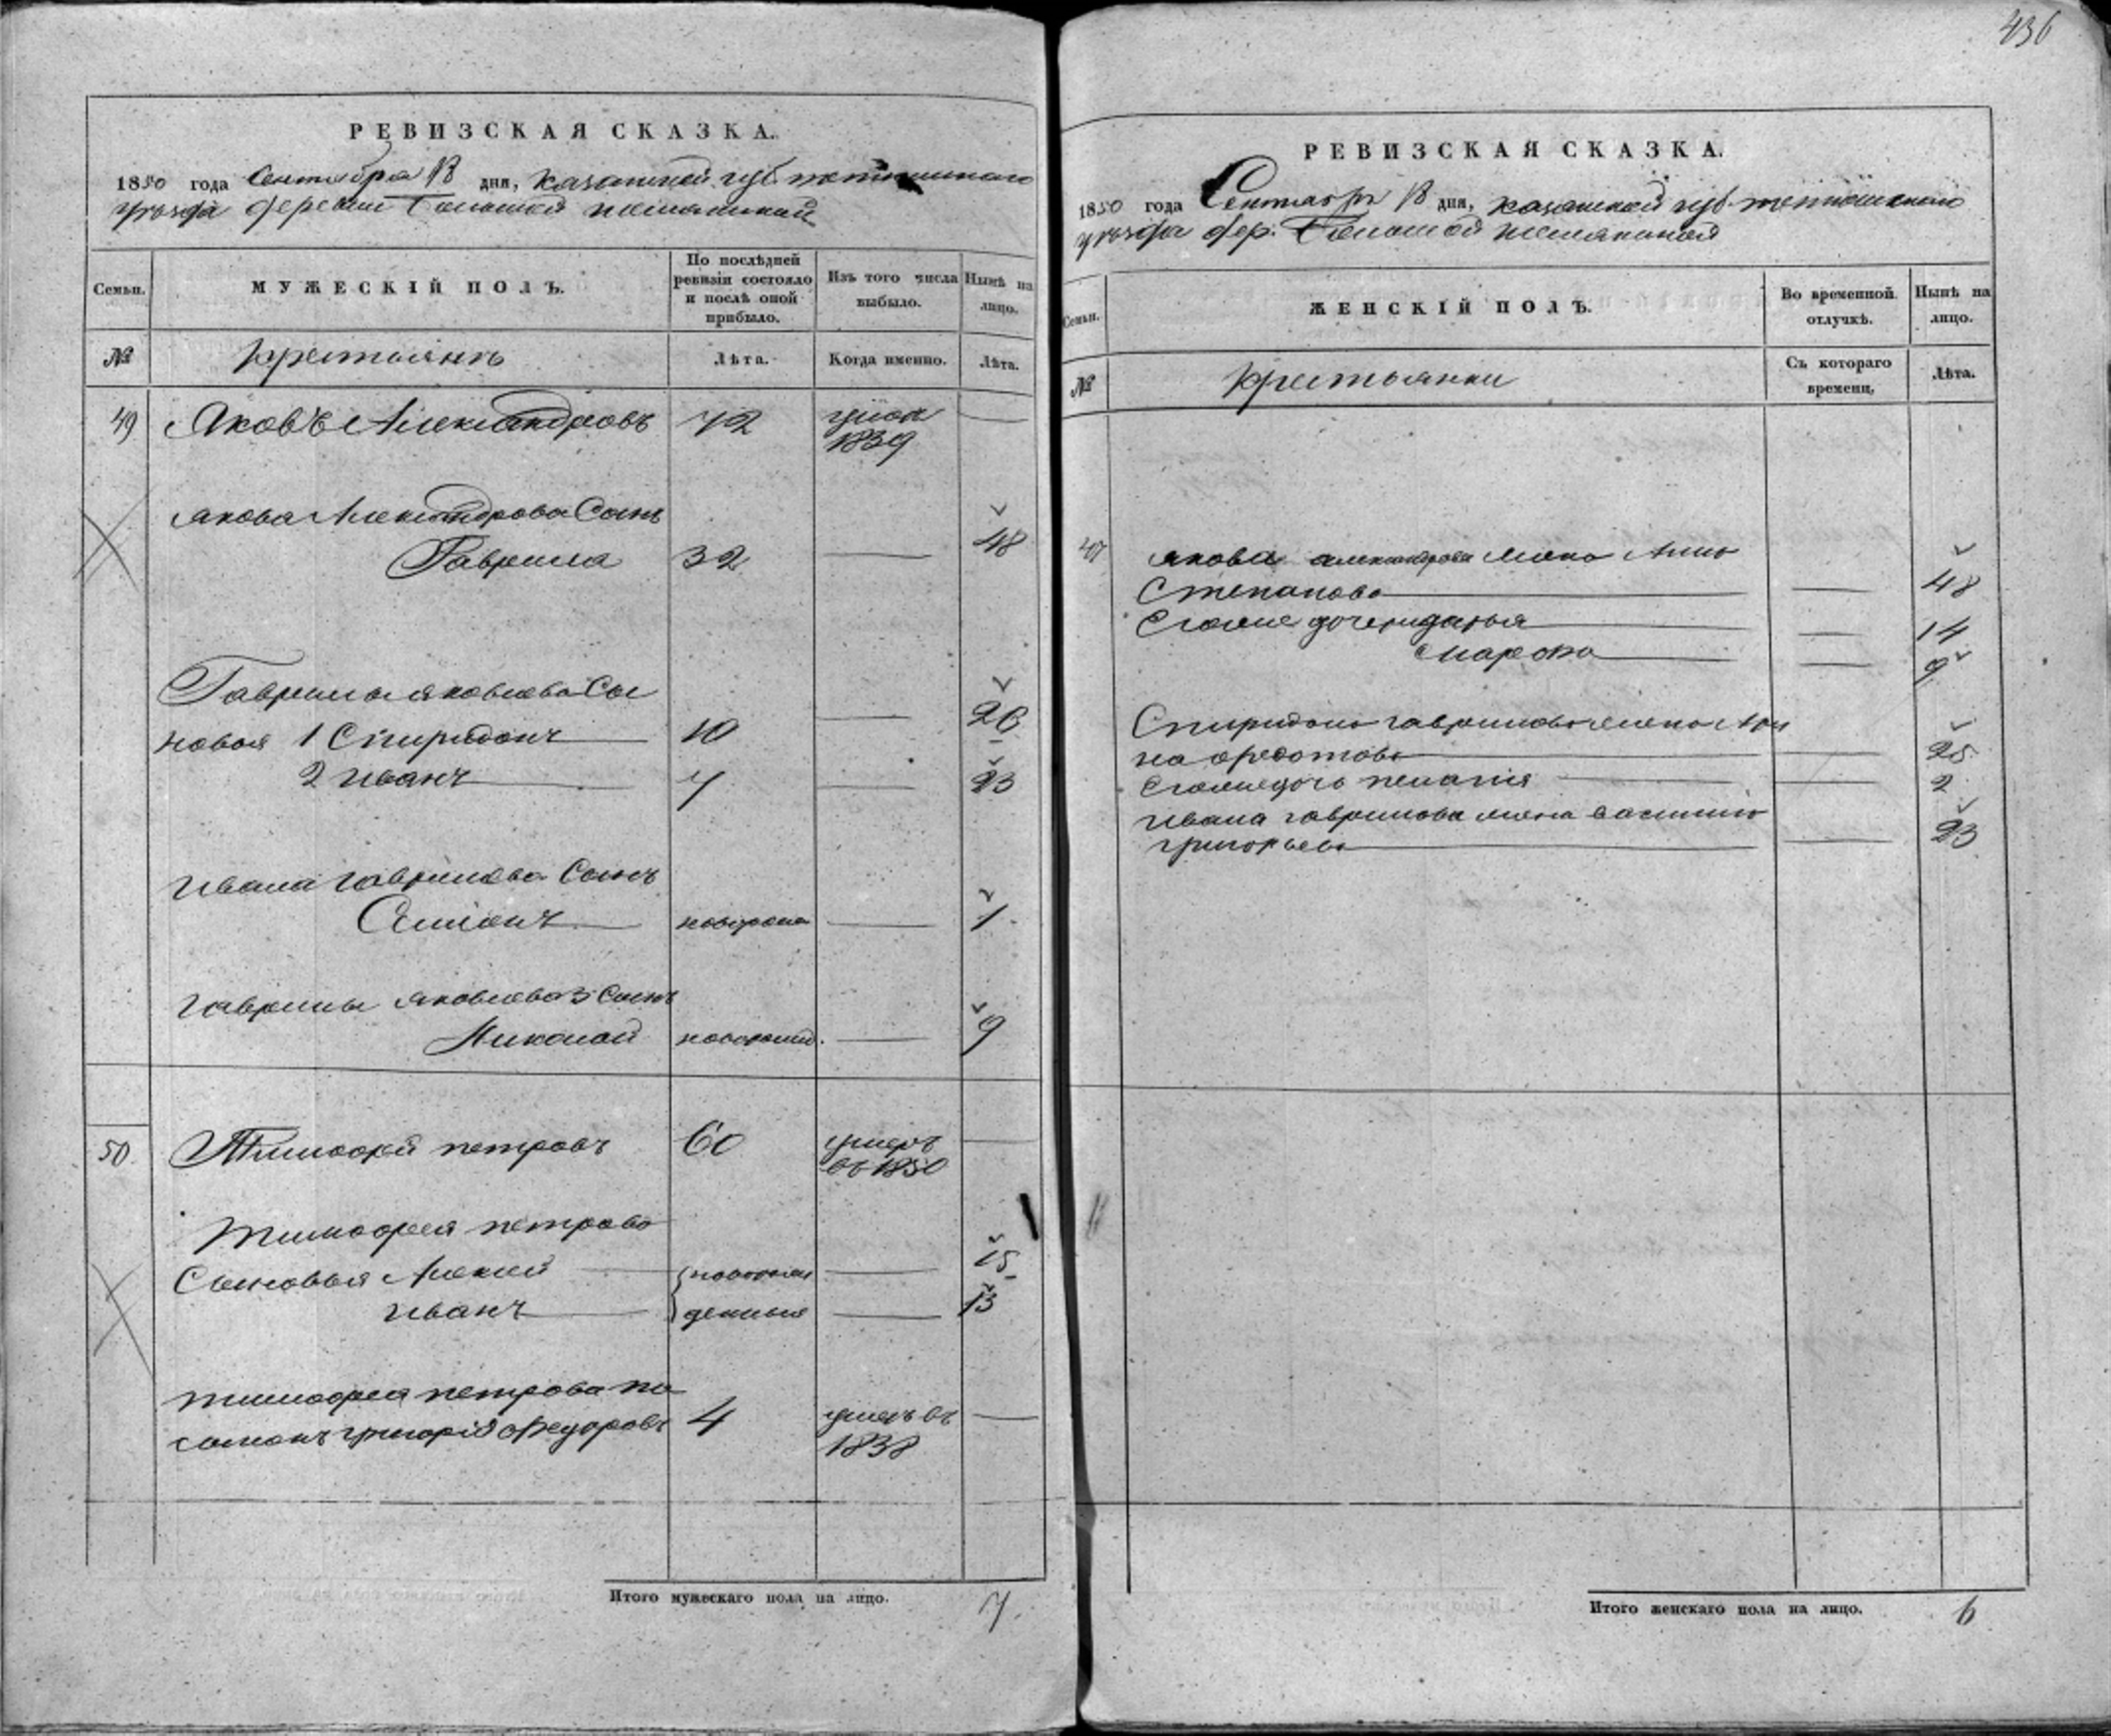 436
РЕВИЗСКАЯ СКАЗКА.
1850 года Сентября 18 дня, казанской губ тетюшскаго
уѣзда деревни Большой
Семьи.
МУЖЕСКІЙ ПОЛЪ.
По послѣдней ревизіи состояло и послѣ оной прибыло.
Изъ того числа выбыло.
Нынѣ на лицо.
№
крестьянъ
Лѣта.
Когда именно.
Лѣта.
49 Яковъ Александровъ 72
1839
Якова Александрова Сынъ
Гаврила 32 48
Гаврилы яковлева Сы
новья 1 Спиридонъ 10 26
2 Иванъ 7 23
Ивана гаврилова Сынъ
Семіонъ 1
гаврилы яковлева 3 Сынъ
Николай новорожд. 9
50 Тимофей петровъ 60 умеръ
въ 1850
Тимофея петрова
Сыновья Алексей новорож 15
Иванъ денные 13
тимофея петрова па
сынокъ григорій Федоровъ 4 умеръ въ
1838
Итого мужескаго пола на лицо. 7.
РЕВИЗСКАЯ СКАЗКА.
1850 года Сентября 18 дня, казанской губ тетюшскаго
уѣзда дер. Большой
Семьи.
ЖЕНСКІЙ ПОЛЪ.
Во временной отлучкѣ.
Нынѣ на лицо.
№
крестьянки
Съ котораго времени,
Лѣта.
якова александрова жена Анна
Степанова 48
дочери дарья 14
Марфа 9
Спиридона гаврилова жена Ари
на федотова 25
дочь пелагія 2
Ивана гаврилова жена
григорьева 23
Итого женскаго пола на лицо. 6